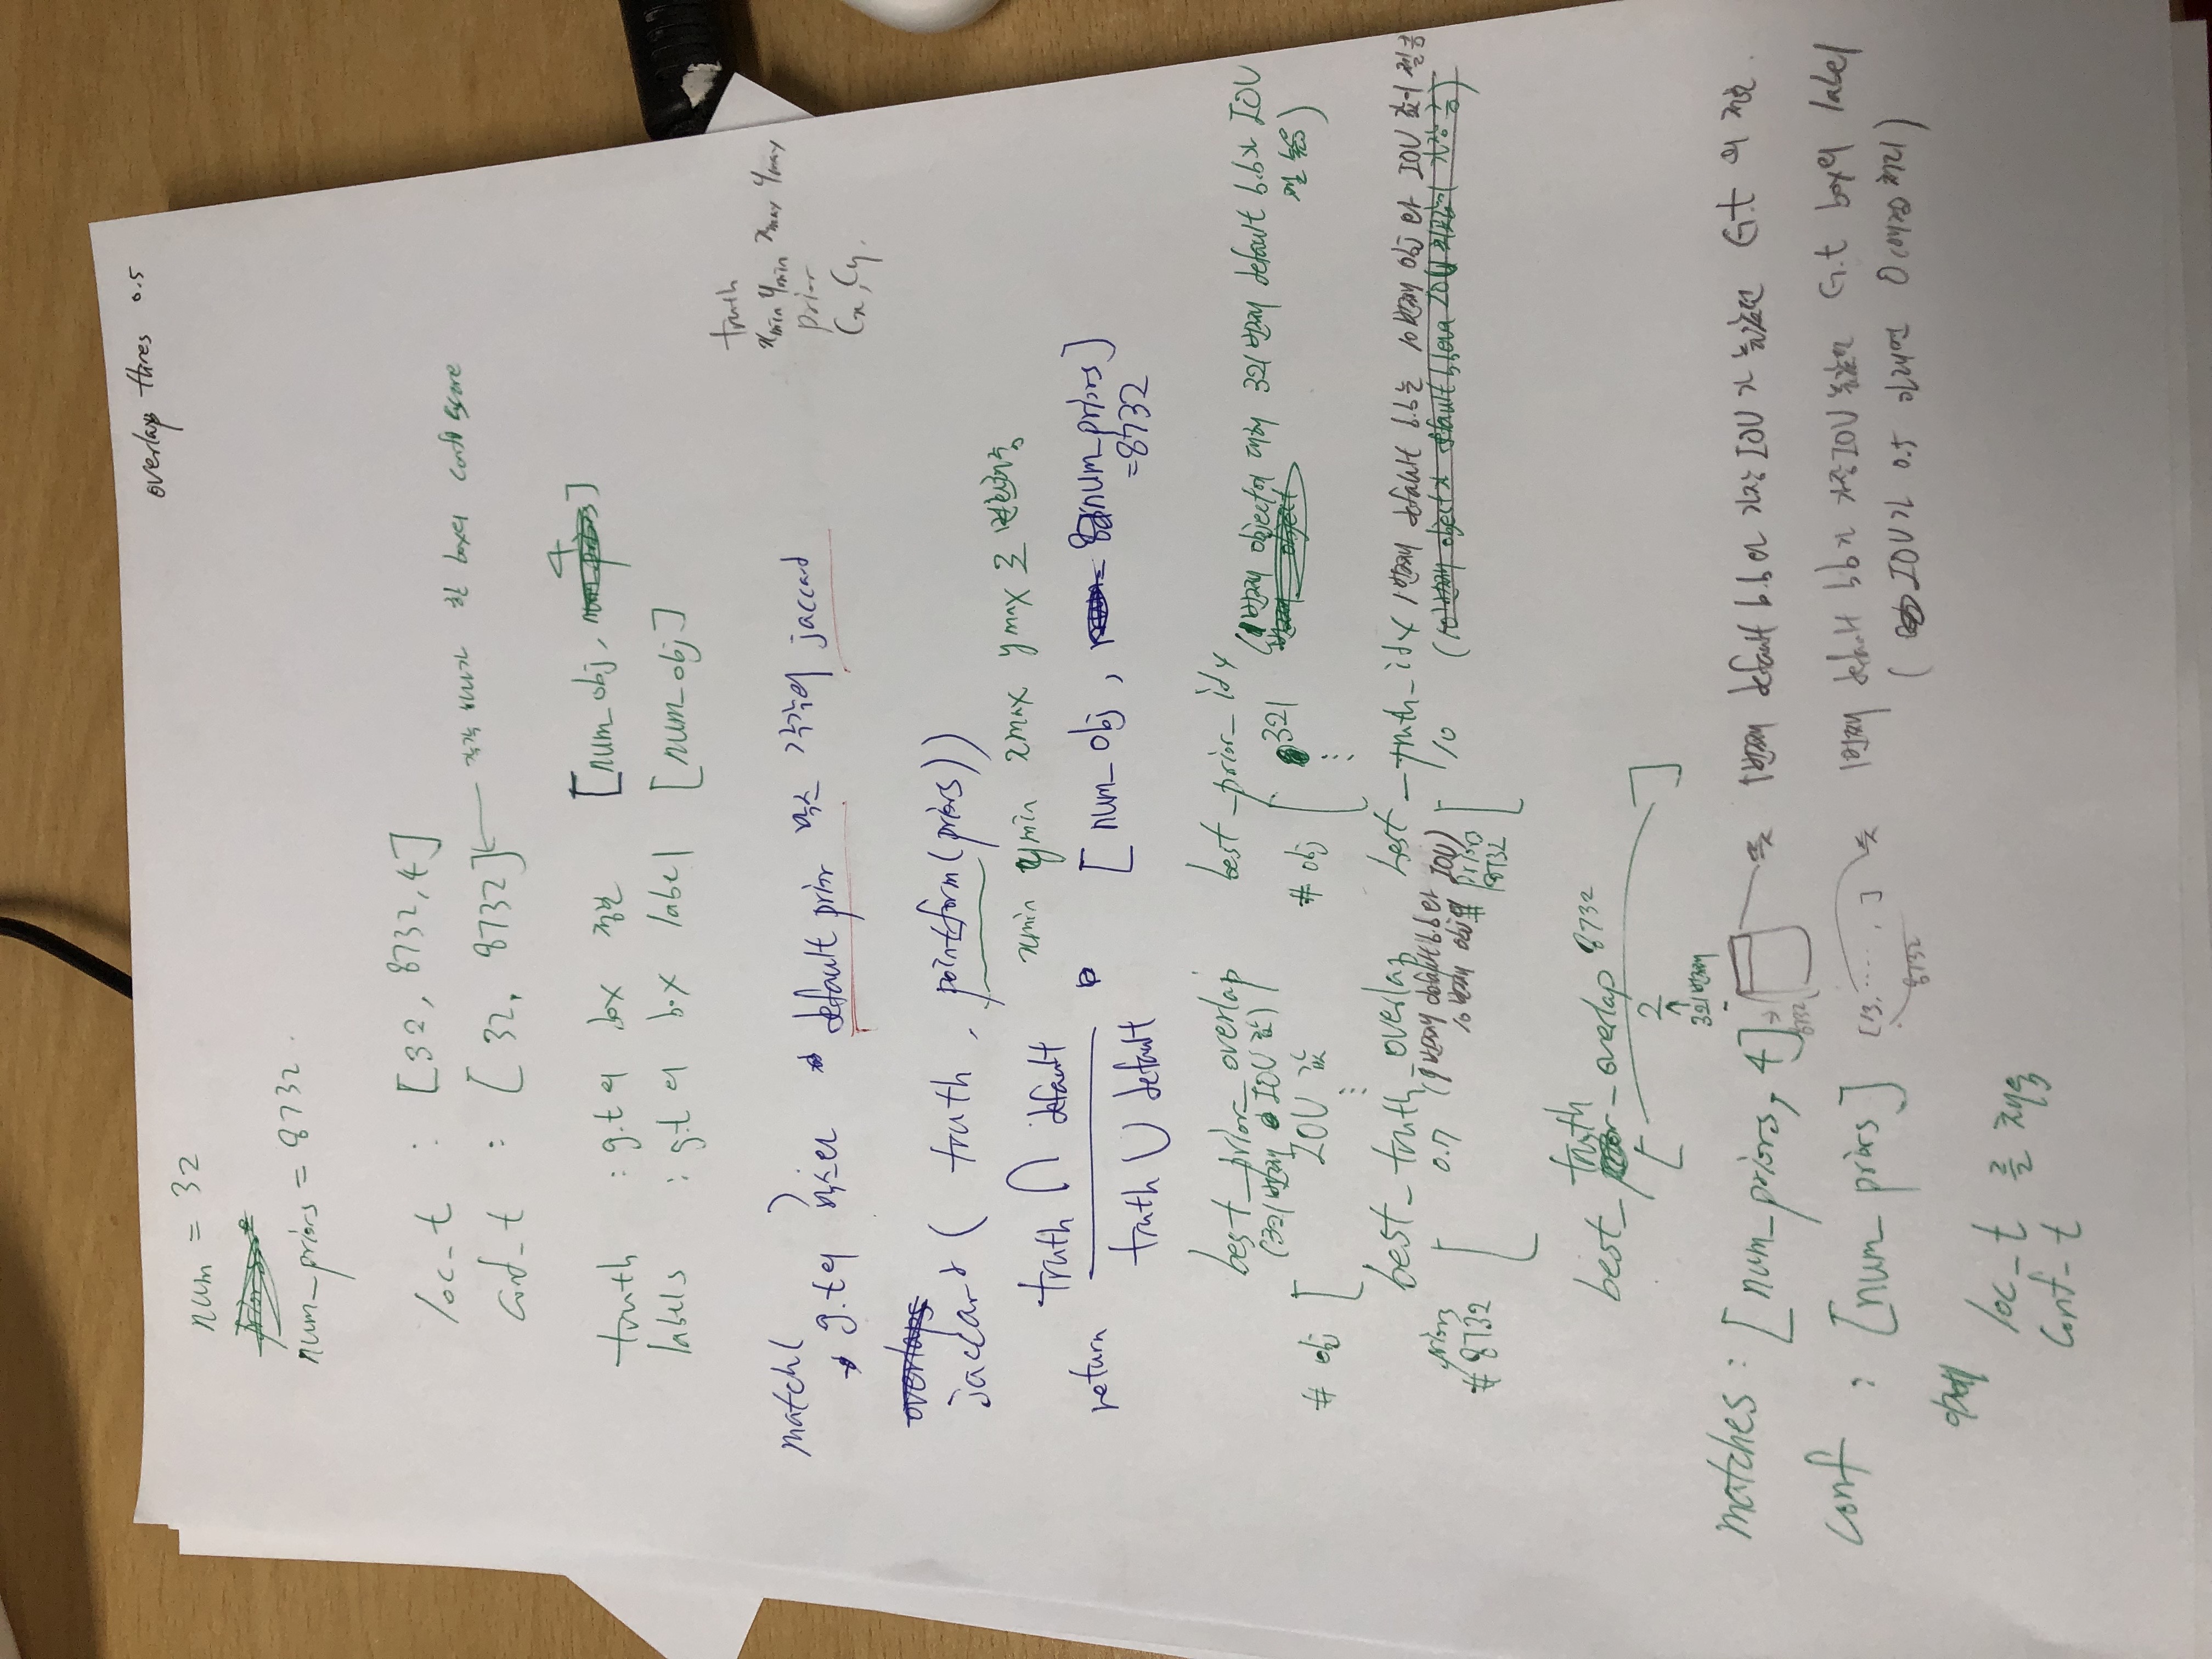 overlap thres 0.5
num = 32
num_priors = 8732
loc_t : [32, 8732, 4]
conf_t : [32, 8732] ← 각각 하나가 한 box의 conf score
truth : g.t의 box 정보 [num_obj, 4]
labels : g.t의 box label [num_obj]
truth
xmin ymin xmax ymax
prior
Cx, Cy.
match( )
→ g.t의 박스와 default prior 박스 각각의 jaccard
overlaps
jaccard ( truth , point_form(priors))
xmin ymin xmax ymax 로 변환해줌
return truth ∩ default
truth ∪ default
[num_obj, num_priors]
=8732
best_prior_overlap
(321번째 IOU 값)
# obj [ IOU 값
⋮
best_prior_idx
# obj [ 321 (1번째 object에 대해 321번째 default b.b가 IOU
제일 높음)
⋮
best_truth_overlap
priors
# 8732 [ 0.7 (1번째 default b.b와
10번째 obj의 IOU)
best_truth_idx 1번째 default b.b는 10번째 obj와 IOU 값이 제일 큼
# priors
8732 [ 10
best_truth_overlap 8732
[ 2 ]
↑
321번째
matches : [num_priors, 4] → 8732 → 즉 1번째 default b.b와 가장 IOU가 높았던 G.t의 좌표.
conf : [num_priors] [13, ..... , ] → 즉 1번째 default b.b가 가장 IOU 높았던 G.t box의 label
8732
(IOU가 0.5 아래면 0(배경) 처리)
이제
loc_t 를 채움
conf_t